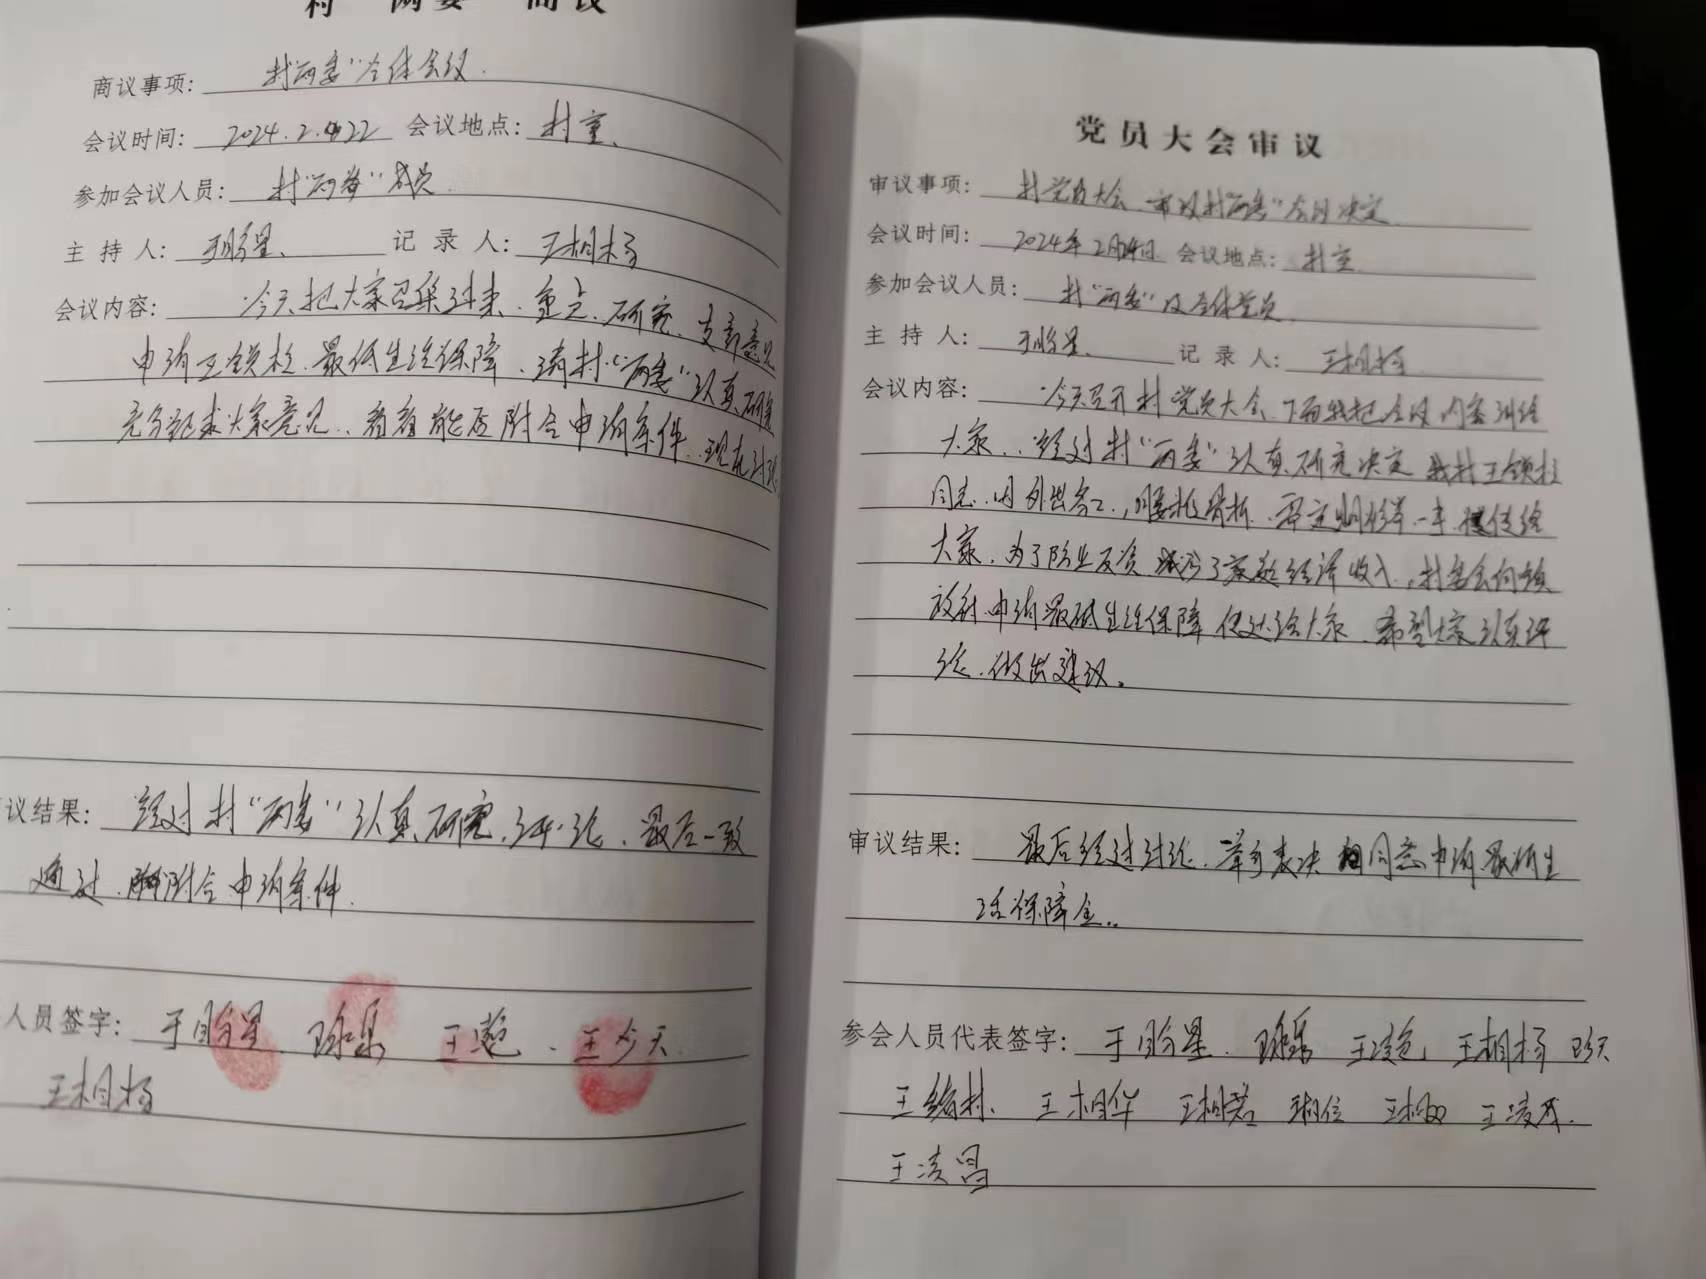 村"两委"商议
商议事项: 村"两委"全体会议.
会议时间: 2024.2.22 会议地点: 村室.
参加会议人员: 村"两委"成员.
主持人: 于盼星. 记录人: 王相杨
会议内容: 今天把大家召集过来. 重点. 研究. 意见
申请王锁柱. 最低生活保障. 请村"两委"认真研究
充分征求大家意见.. 看看能否附合申请条件. 现在讨论
议结果: 经过村"两委"认真研究. 评论. 最后一致
通过. 附合申请条件.
人员签字: 于盼星. 王 王今天
王相杨
党员大会审议
审议事项: 村党员大会 审议村"两委"会议决定.
会议时间: 2024年2月24日 会议地点: 村室
参加会议人员: 村"两委"及全体党员.
主持人: 于盼星. 记录人: 王相杨
会议内容: 今天召开村党员大会. 下面我把会议内容训给
大家.. 经过村"两委"认真研究决定 我村王锁柱
同志. 因外出务工, 腰椎骨折. 一事 传给
大家. 为了防止反贫 减少了家庭经济收入, 村委会向镇
政府. 申请最低生活保障 传达给大家. 希望大家认真评
论. 做出建议。
审议结果: 最后经过讨论. 举手表决 同意申请最低生
活保障金..
参会人员代表签字: 于盼星. 王相杨
王绪村. 王相华 王相君 王相位 王凌
王凌昌